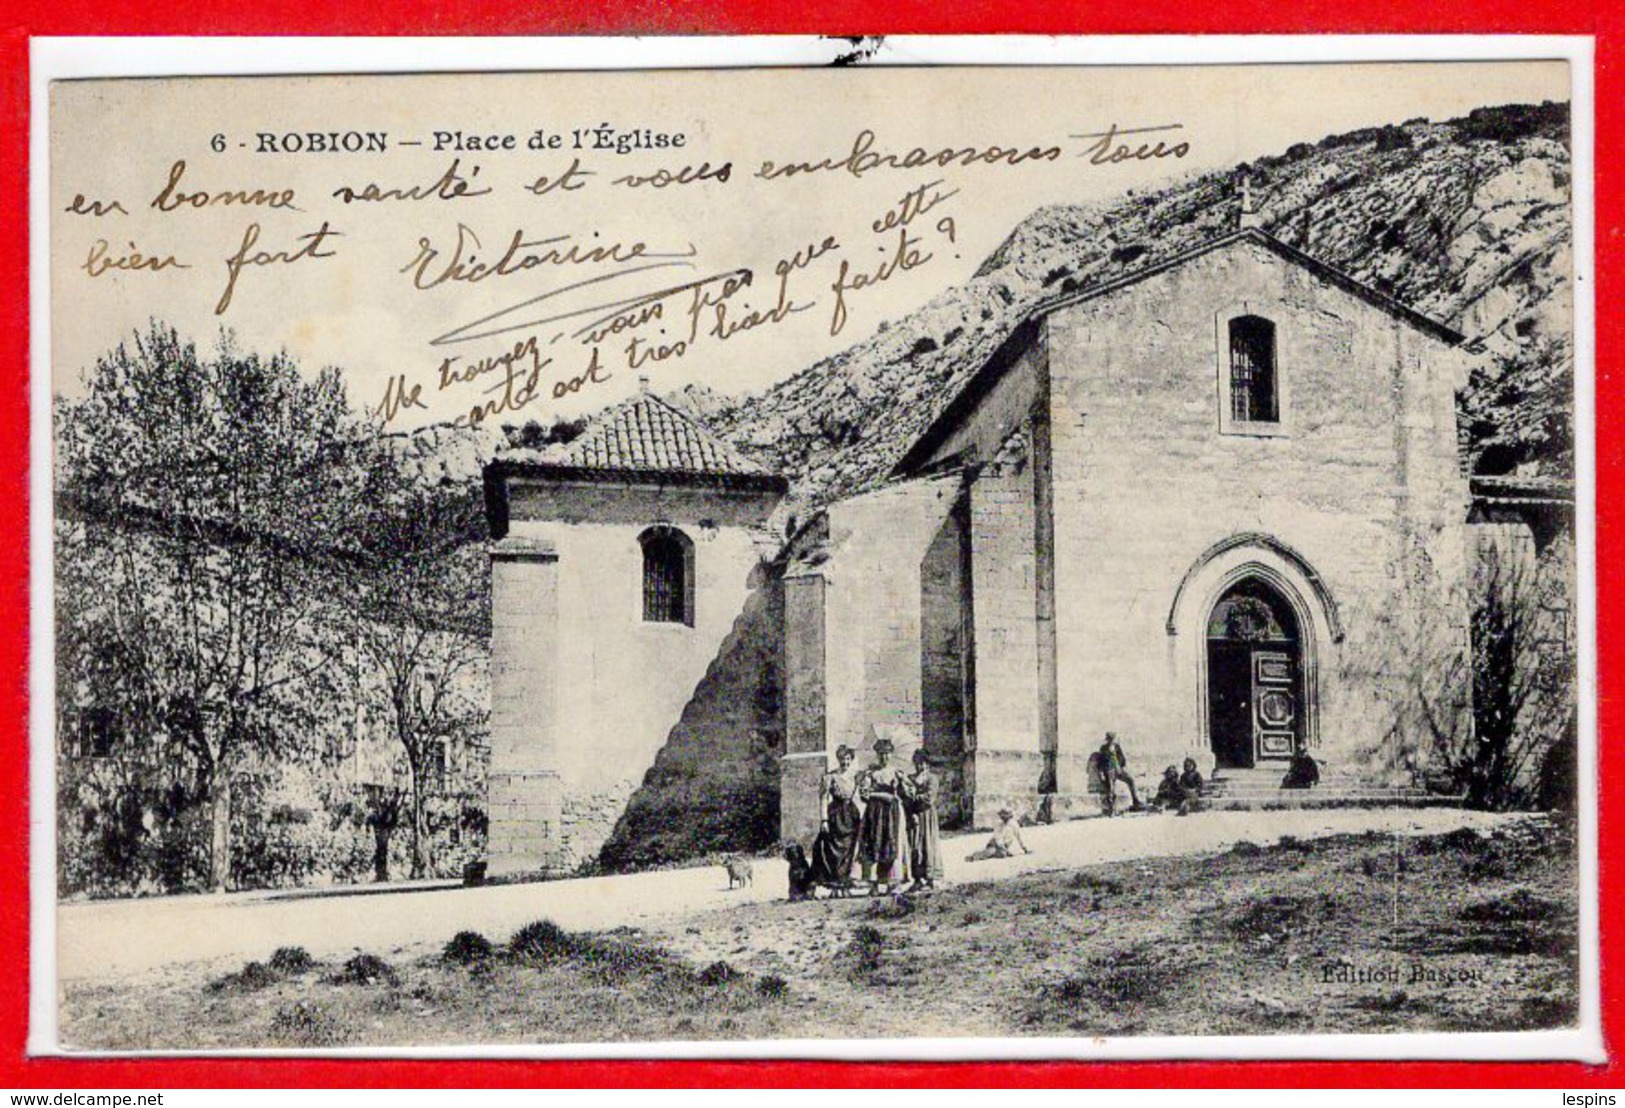 6 - ROBION — Place de l'Église
en bonne santé et vous embrassons tous
bien fort Victorine
Ne trouvez-vous pas que cette
carte est très bien faite ?
Edition Bascou
www.delcampe.net
lespins